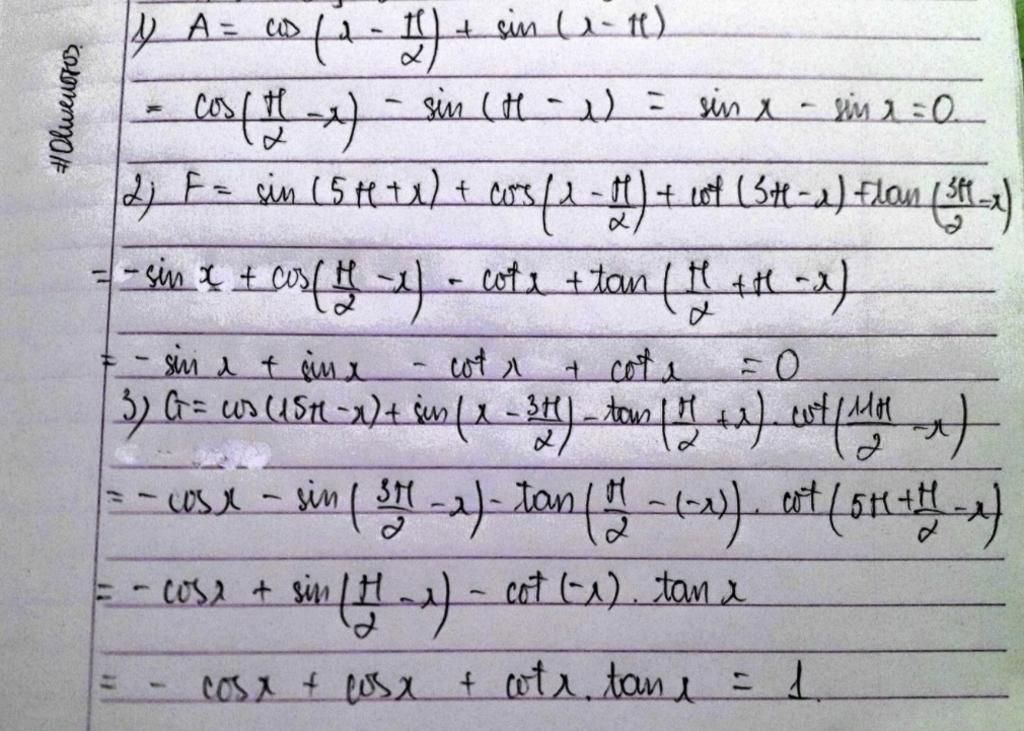 #Olwenoros.
1) A = cos (x - π/2) + sin (x - π)
= cos(π/2 - x) - sin (π - x) = sin x - sin x = 0.
2) F = sin (5π + x) + cos(x - π/2) + cot (3π - x) + tan (3π/2 - x)
= - sin x + cos(π/2 - x) - cot x + tan (π/2 + π - x)
= - sin x + sin x - cot x + cot x = 0
3) G = cos (15π - x) + sin (x - 3π/2) - tan (π/2 + x) . cot (11π/2 - x)
= - cos x - sin (3π/2 - x) - tan (π/2 - (-x)) . cot (5π + π/2 - x)
= - cos x + sin (π/2 - x) - cot (-x) . tan x
= - cos x + cos x + cot x . tan x = 1.